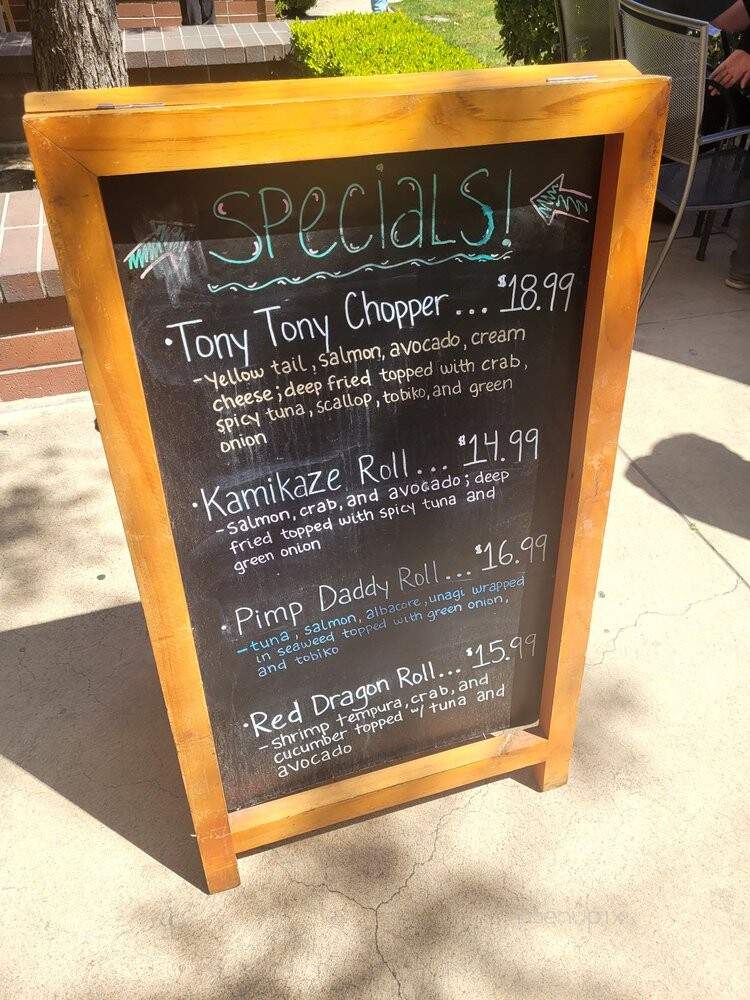 SPeciaLS!
·Tony Tony Chopper... $18.99
-Yellow tail, salmon, avocado, cream
cheese; deep fried topped with crab,
spicy tuna, scallop, tobiko, and green
onion
·Kamikaze Roll... $14.99
-Salmon, crab, and avocado; deep
fried topped with spicy tuna and
green onion
·Pimp Daddy Roll... $16.99
-tuna, salmon, albacore, unagi wrapped
in seaweed topped with green onion,
and tobiko
·Red Dragon Roll... $15.99
-Shrimp tempura, crab, and
cucumber topped w/ tuna and
avocado